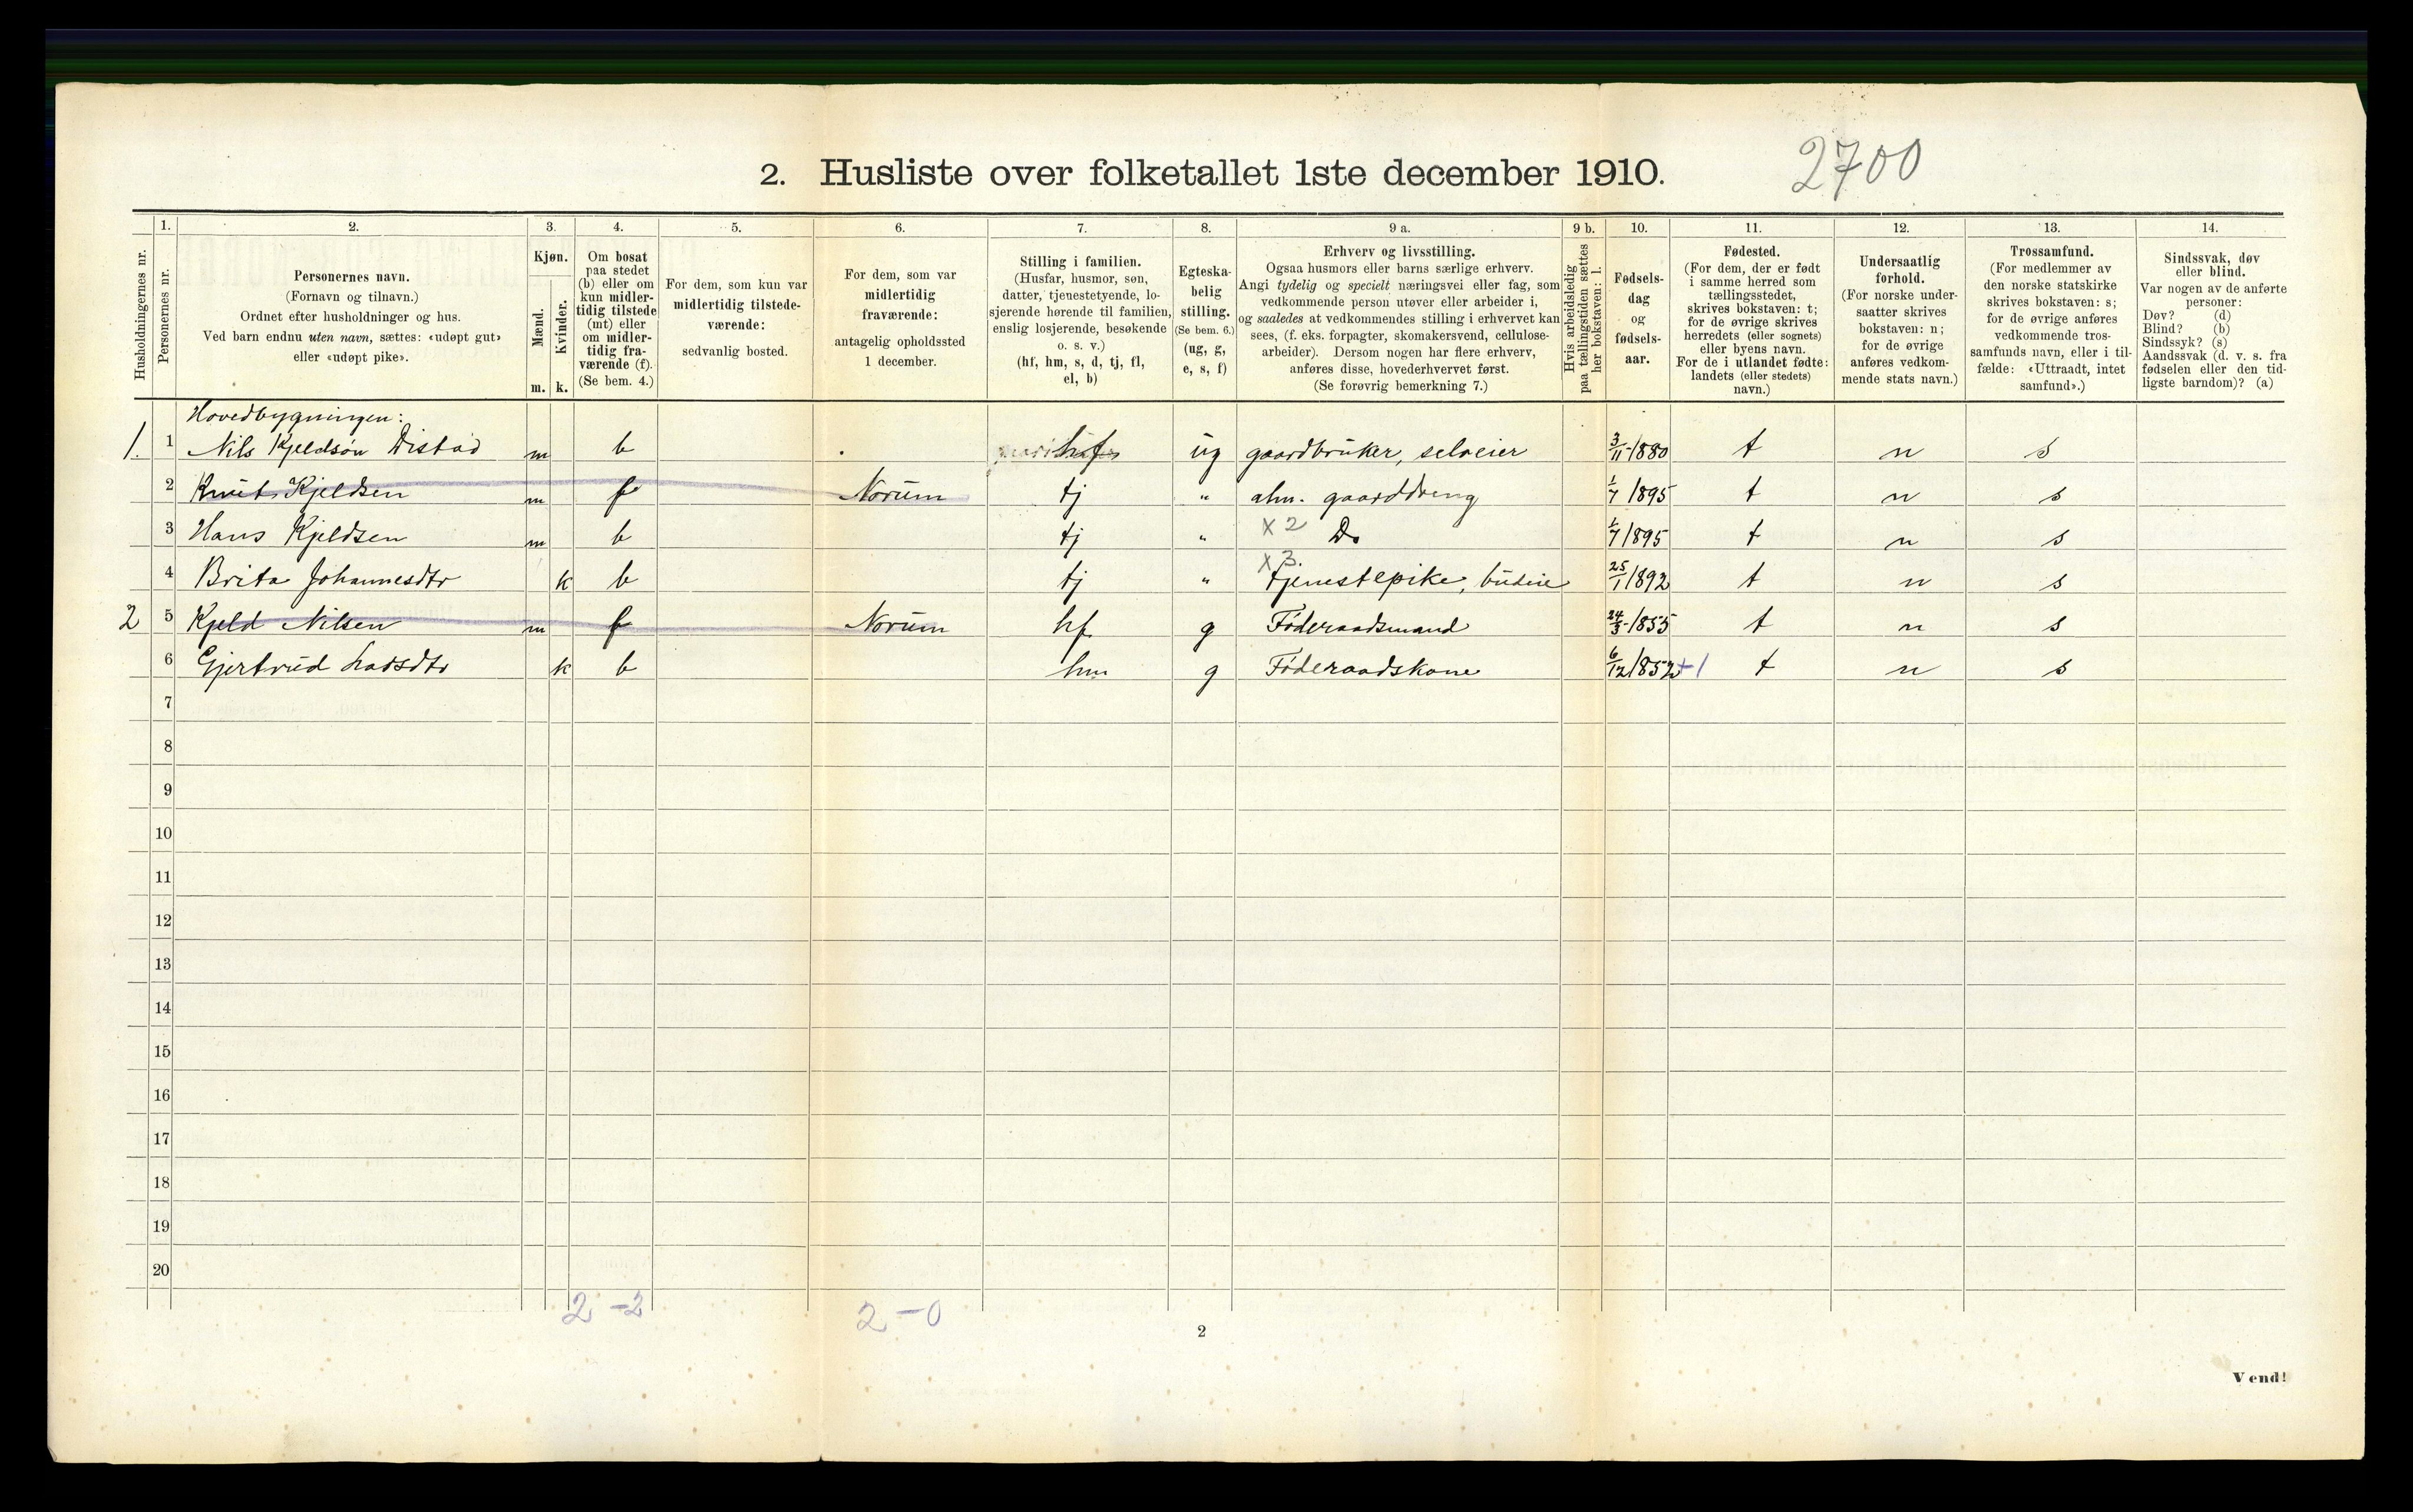 2. Husliste over folketallet 1ste december 1910.
2700
Husholdningernes nr.
1.
Personernes nr.
2.
Personernes navn.
(Fornavn og tilnavn.)
Ordnet efter husholdninger og hus.
Ved barn endnu uten navn, sættes: «udøpt gut»
eller «udøpt pike».
3.
Kjøn.
Mænd.
m.
Kvinder.
k.
4.
Om bosat
paa stedet
(b) eller om
kun midler-
tidig tilstede
(mt) eller
om midler-
tidig fra-
værende (f).
(Se bem. 4.)
5.
For dem, som kun var
midlertidig tilstede-
værende:
sedvanlig bosted.
6.
For dem, som var
midlertidig
fraværende:
antagelig opholdssted
1 december.
7.
Stilling i familien.
(Husfar, husmor, søn,
datter, tjenestetyende, lo-
sjerende hørende til familien,
enslig losjerende, besøkende
o. s. v.)
(hf, hm, s, d, tj, fl,
el, b)
8.
Egteska-
belig
stilling.
(Se bem. 6.)
(ug, g,
e, s, f)
9 a.
Erhverv og livsstilling.
Ogsaa husmors eller barns særlige erhverv.
Angi tydelig og specielt næringsvei eller fag, som
vedkommende person utøver eller arbeider i,
og saaledes at vedkommendes stilling i erhvervet kan
sees, (f. eks. forpagter, skomakersvend, cellulose-
arbeider). Dersom nogen har flere erhverv,
anføres disse, hovederhvervet først.
(Se forøvrig bemerkning 7.)
9 b.
Hvis arbeidsledig
paa tællingstiden sættes
her bokstaven: l.
10.
Fødsels-
dag
og
fødsels-
aar.
11.
Fødested.
(For dem, der er født
i samme herred som
tællingsstedet,
skrives bokstaven: t;
for de øvrige skrives
herredets (eller sognets)
eller byens navn.
For de i utlandet fødte:
landets (eller stedets)
navn.)
12.
Undersaatlig
forhold.
(For norske under-
saatter skrives
bokstaven: n;
for de øvrige
anføres vedkom-
mende stats navn.)
13.
Trossamfund.
(For medlemmer av
den norske statskirke
skrives bokstaven: s;
for de øvrige anføres
vedkommende tros-
samfunds navn, eller i til-
fælde: «Uttraadt, intet
samfund».)
14.
Sindssvak, døv
eller blind.
Var nogen av de anførte
personer:
Døv? (d)
Blind? (b)
Sindssyk? (s)
Aandssvak (d. v. s. fra
fødselen eller den tid-
ligste barndom)? (a)
Hovedbygningen:
1. 1 Nils Kjeldsøn Distad m b hf ug gaardbruker, selveier 3/11-1880 t n s
2 Knut Kjeldsen m f Norum tj " alm. gaarddreng 1/7 1895 t n s
3 Hans Kjeldsen m b tj " x 2 Do 1/7 1895 t n s
4 Brita Johannesdtr k b tj " x 3. tjenestepike, budeie 25/1 1892 t n s
2 5 Kjeld Nilsen m f Norum hf g Føderaadsmand 24/3-1855 t n s
6 Gjertrud Larsdtr k b hm g Føderaadskone 6/12 1852 +1 t n s
7
8
9
10
11
12
13
14
15
16
17
18
19
20
2 - 2 2 - 0
2
Vend!